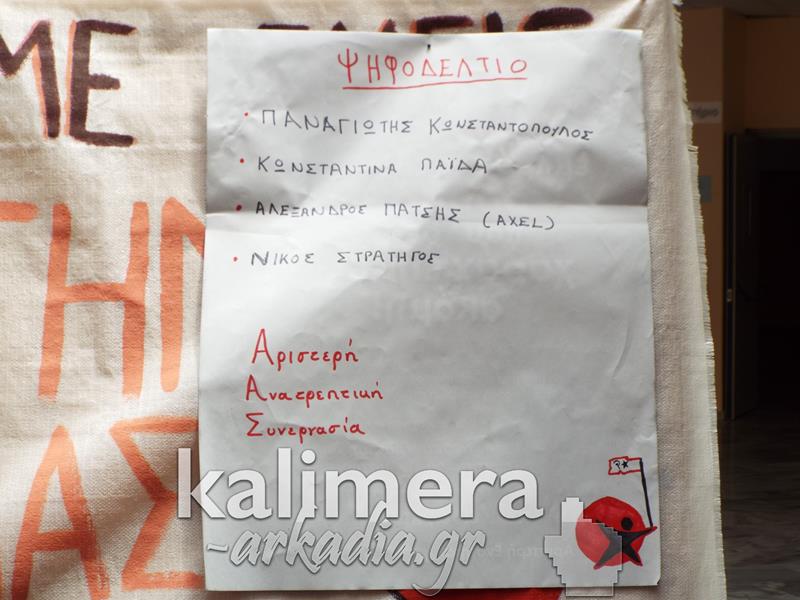 ΜΕ ΕΜΕΙΣ
ΤΗΝ
ΑΣ
ΨΗΦΟΔΕΛΤΙΟ
• ΠΑΝΑΓΙΩΤΗΣ ΚΩΝΣΤΑΝΤΟΠΟΥΛΟΣ
• ΚΩΝΣΤΑΝΤΙΝΑ ΠΑΪΔΑ
• ΑΛΕΞΑΝΔΡΟΣ ΠΑΤΣΗΣ (AXEL)
• ΝΙΚΟΣ ΣΤΡΑΤΗΓΟΣ
Αριστερή
Ανατρεπτική
Συνεργασία
kalimera
-arkadia.gr